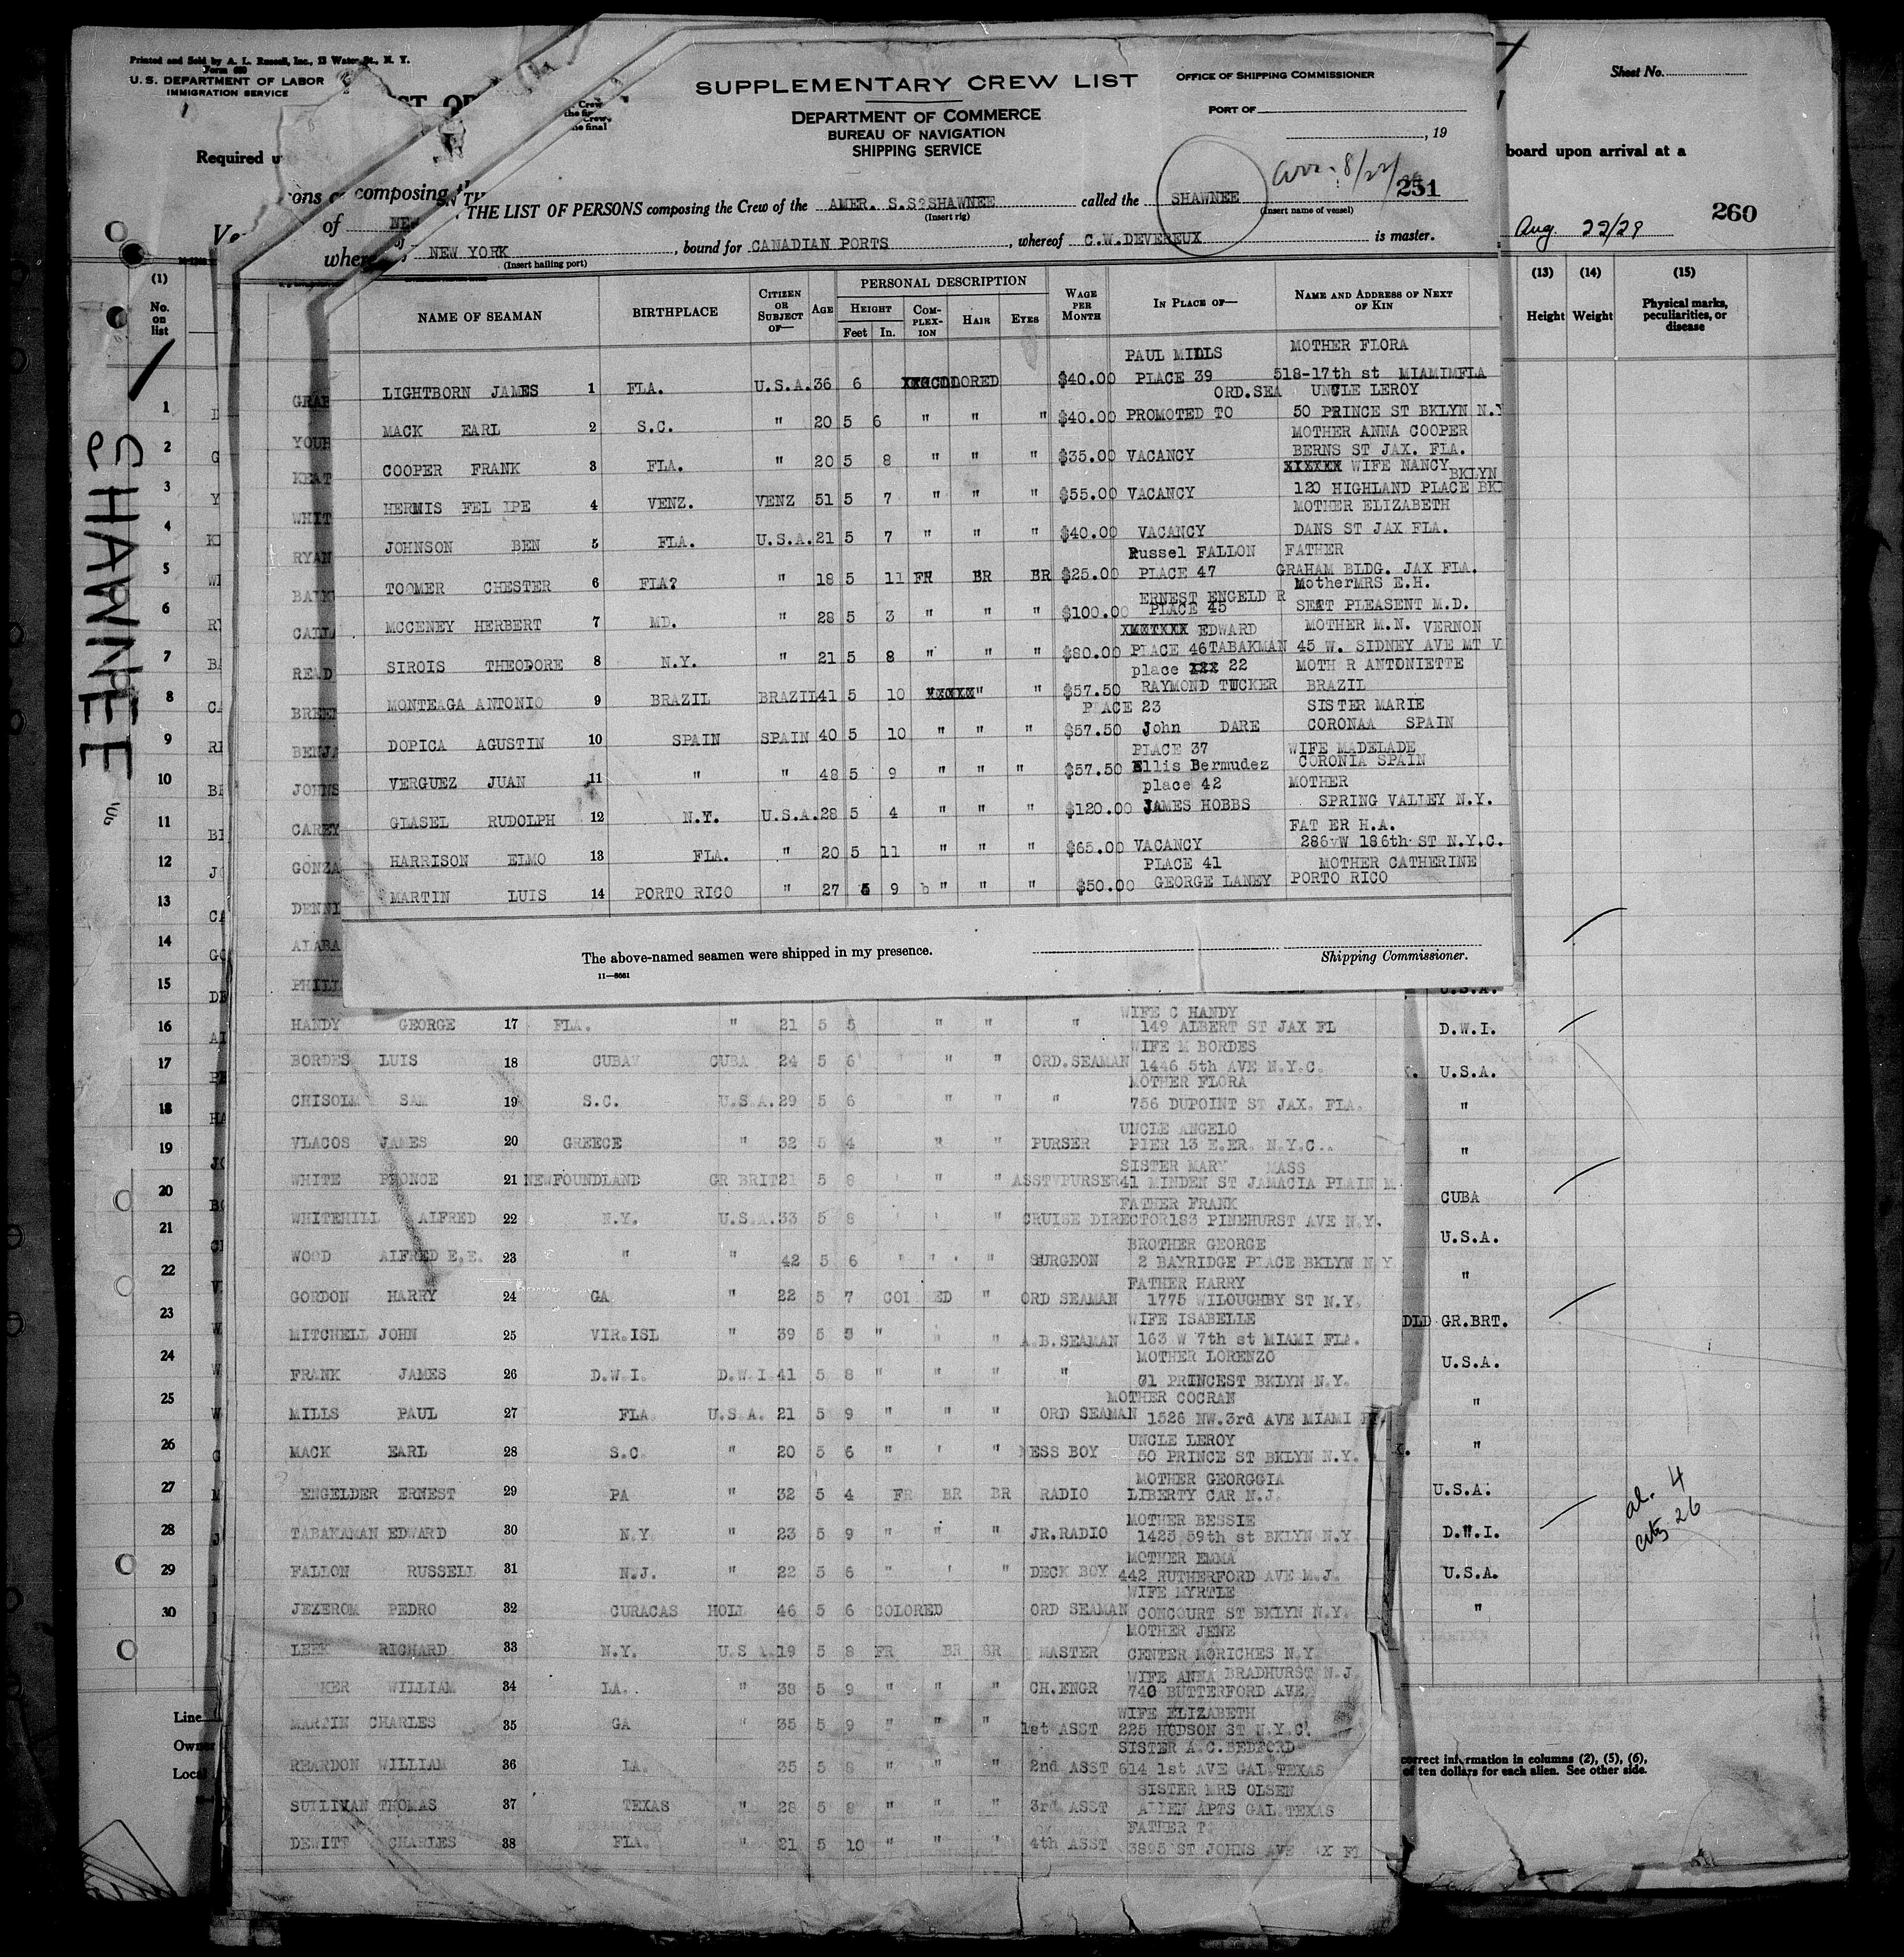 Printed and Sold by A. L. Russell, Inc., 13 Water St., N. Y.
Form 680
U. S. DEPARTMENT OF LABOR
IMMIGRATION SERVICE
Required
SUPPLEMENTARY CREW LIST
DEPARTMENT OF COMMERCE
BUREAU OF NAVIGATION
SHIPPING SERVICE
OFFICE OF SHIPPING COMMISSIONER
PORT OF
, 19
Sheet No.
board upon arrival at a
Aug. 22/29
260
arr. 8/22/
251
composing th
THE LIST OF PERSONS composing the Crew of the AMER. S.S?SHAWNEE called the SHAWNEE
(Insert rig) (Insert name of vessel)
of NEW YORK , bound for CANADIAN PORTS , whereof C.W.DEVEREUX is master.
(Insert hailing port)
NAME OF SEAMAN BIRTHPLACE CITIZEN OR SUBJECT OF— AGE PERSONAL DESCRIPTION HEIGHT Feet In. COMPLEXION HAIR EYES WAGE PER MONTH IN PLACE OF— NAME AND ADDRESS OF NEXT OF KIN
PAUL MILLS MOTHER FLORA
LIGHTBORN JAMES 1 FLA. U.S.A. 36 6 COLORED $40.00 PLACE 39 518-17th st MIAMIMFLA
ORD.SEA UNCLE LEROY
MACK EARL 2 S.C. " 20 5 6 " " " $40.00 PROMOTED TO 50 PRINCE ST BKLYN N.Y
MOTHER ANNA COOPER
COOPER FRANK 3 FLA. " 20 5 8 " " " $35.00 VACANCY BERNS ST JAX. FLA.
XXXXXX WIFE NANCY BKLYN
HERMIS FEL IPE 4 VENZ. VENZ 51 5 7 " " " $55.00 VACANCY 120 HIGHLAND PLACE BKL
MOTHER ELIZABETH
JOHNSON BEN 5 FLA. U.S.A. 21 5 7 " " " $40.00 VACANCY DANS ST JAX FLA.
Russel FALLON FATHER
TOOMER CHESTER 6 FLA? " 18 5 11 FR BR BR $25.00 PLACE 47 GRAHAM BLDG. JAX FLA.
ERNEST ENGELD R MotherMRS E.H.
MCCENEY HERBERT 7 MD. " 28 5 3 " " " $100.00 PLACE 45 SEAT PLEASENT M.D.
EDWARD MOTHER M.N. VERNON
SIROIS THEODORE 8 N.Y. " 21 5 8 " " " $80.00 PLACE 46TABAKMAN 45 W. SIDNEY AVE MT V
place XXX 22 MOTH R ANTONIETTE
MONTEAGA ANTONIO 9 BRAZIL BRAZIL 41 5 10 XXXXX " " $57.50 RAYMOND TUCKER BRAZIL
PLACE 23 SISTER MARIE
DOPICA AGUSTIN 10 SPAIN SPAIN 40 5 10 " " " $57.50 John DARE CORONAA SPAIN
PLACE 37 WIFE MADELADE
VERGUEZ JUAN 11 " " 48 5 9 " " " $57.50 Ellis Bermudez CORONIA SPAIN
place 42 MOTHER
GLASEL RUDOLPH 12 N.Y. U.S.A. 28 5 4 " " " $120.00 JAMES HOBBS SPRING VALLEY N.Y.
FAT ER H.A.
HARRISON ELMO 13 FLA. " 20 5 11 " " " $65.00 VACANCY 286 W 186th ST N.Y.C.
PLACE 41 MOTHER CATHERINE
MARTIN LUIS 14 PORTO RICO " 27 5 9 b " " " $50.00 GEORGE LANEY PORTO RICO
The above-named seamen were shipped in my presence.
Shipping Commissioner.
11—8661
WIFE C HANDY
HANDY GEORGE 17 FLA. " 21 5 5 " " " 149 ALBERT ST JAX FL
WIFE M BORDES
BORDES LUIS 18 CUBA CUBA 24 5 6 " " " ORD.SEAMAN 1446 5th AVE N.Y.C.
MOTHER FLORA
CHISOLM SAM 19 S.C. U.S.A. 29 5 6 " " " 756 DUPOINT ST JAX. FLA.
UNCLE ANGELO
VLACOS JAMES 20 GREECE " 32 5 4 " " PURSER PIER 13 E.ER. N.Y.C.
SISTER MARY MASS
WHITE PRONCE 21 NEWFOUNDLAND GR BRIT 21 5 8 " " " ASSTVPURSER 41 MINDEN ST JAMACIA PLAIN M
FATHER FRANK
WHITEHILL ALFRED 22 N.Y. U.S.A. 33 5 8 " " " CRUISE DIRECTOR 183 PINEHURST AVE N.Y.
BROTHER GEORGE
WOOD ALFRED E.E. 23 " " 42 5 6 " " " SURGEON 2 BAYRIDGE PLACE BKLYN N Y
FATHER HARRY
GORDON HARRY 24 GA " 22 5 7 COL ED " ORD SEAMAN 1775 WILOUGHBY ST N.Y.
WIFE ISABELLE
MITCHELL JOHN 25 VIR.ISL " 39 5 5 " " " A.B.SEAMAN 163 W 7th st MIAMI FLA.
MOTHER LORENZO
FRANK JAMES 26 D.W.I. D.W.I. 41 5 8 " " " " 61 PRINCEST BKLYN N.Y.
MOTHER COCRAN
MILLS PAUL 27 FLA U.S.A. 21 5 9 " " " ORD SEAMAN 1526 NW.3rd AVE MIAMI
UNCLE LEROY
MACK EARL 28 S.C. " 20 5 6 " " " MESS BOY 50 PRINCE ST BKLYN N.Y.
MOTHER GEORGGIA
ENGELDER ERNEST 29 PA " 32 5 4 FR BR BR RADIO LIBERTY CAR N.J.
MOTHER BESSIE
TABAKAMAN EDWARD 30 N.Y. " 23 5 9 " " " JR.RADIO 1425 59th st BKLYN N.Y.
MOTHER EMMA
FALLON RUSSELL 31 N.J. " 22 5 6 " " " DECK BOY 442 RUTHERFORD AVE M.J.
WIFE MYRTLE
JEZEROM PEDRO 32 CURACAS HOLL 46 5 6 COLORED ORD SEAMAN CONCOURT ST BKLYN N.Y.
MOTHER JENE
LEEK RICHARD 33 N.Y. U.S.A. 19 5 8 FR BR BR MASTER CENTER MORICHES N.Y
WIFE ANNA BRADHURST N.J.
KER WILLIAM 34 LA. " 38 5 9 " " " CH.ENGR 740 BUTTERFORD AVE
WIFE ELIZABETH
MARTIN CHARLES 35 GA " 35 5 9 " " " 1st ASST 225 HUDSON ST N.Y.C.
SISTER A.C.BEDFORD
REARDON WILLIAM 36 LA. 35 5 8 " " " 2nd ASST 614 1st AVE GAL TEXAS
SISTER MRS OLSEN
SULLIVAN THOMAS 37 TEXAS " 28 5 8 " " " 3rd ASST ALLEN APTS GAL TEXAS
FATHER T
DEWITT CHARLES 38 FLA. " 21 5 10 " " " 4th ASST 3895 ST JOHNS AVE
(1) No. on list
1
2
3
4
5
6
7
8
9
10
11
12
13
14
15
16
17
18
19
20
21
22
23
24
25
26
27
28
29
30
Line
Owner
Local
SHAWNEE
(13) Height (14) Weight (15) Physical marks, peculiarities, or disease
U.S.A.
D.W.I.
U.S.A.
"
"
CUBA
U.S.A.
"
DLD GR.BRT.
U.S.A.
"
"
U.S.A.
D.W.I.
U.S.A.
"
al. 4
citz 26
correct information in columns (2), (5), (6),
of ten dollars for each alien. See other side.